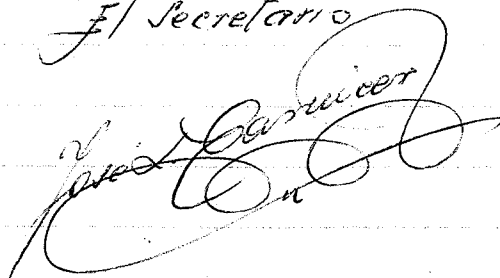 El Secretario
José L Carnicer